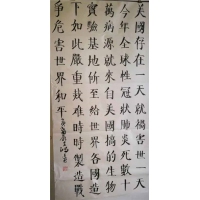 美國存在一天就禍害世一天
今年全球性冠狀肺炎死數十
萬病源就來自美國搞的生物
實驗基地所至給世界各國造
下如此嚴重栽難時時製造戰
爭危害世界和平